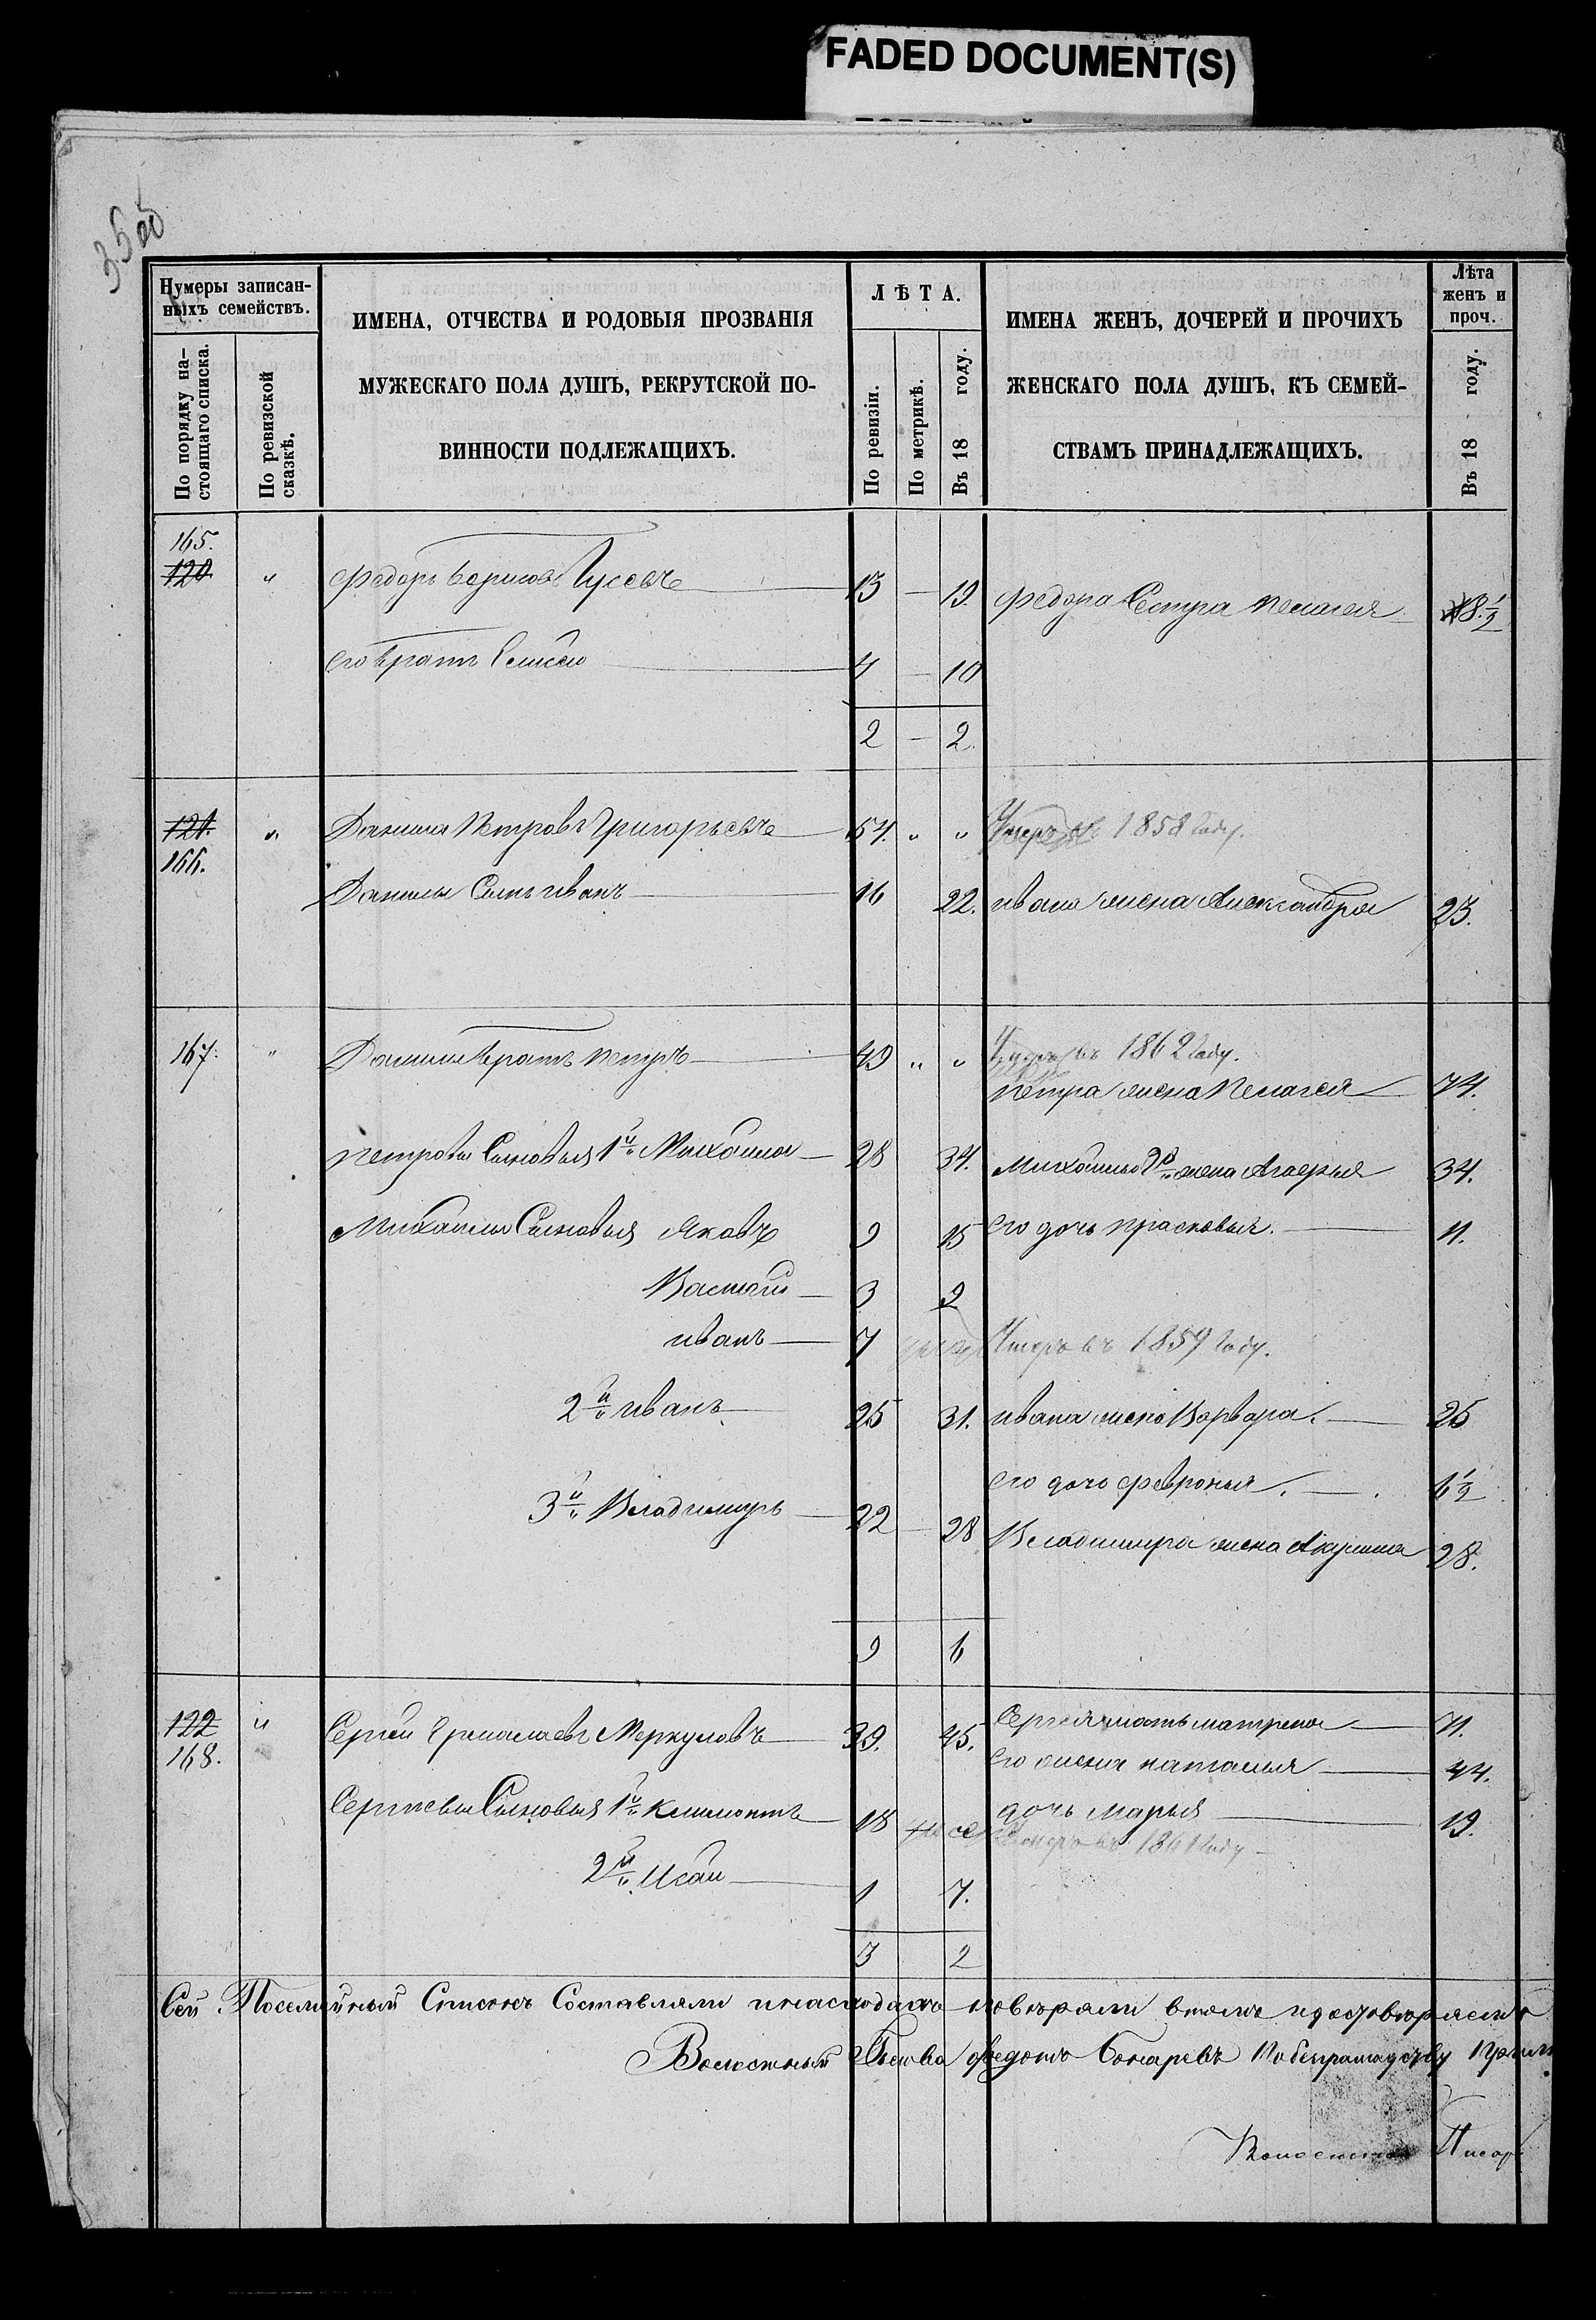 FADED DOCUMENT(S)
35об
Нумеры записан-
ныхъ семействъ.
По порядку на-
стоящаго списка.
По ревизской
сказкѣ.
ИМЕНА, ОТЧЕСТВА И РОДОВЫЯ ПРОЗВАНІЯ
МУЖЕСКАГО ПОЛА ДУШЪ, РЕКРУТСКОЙ ПО-
ВИННОСТИ ПОДЛЕЖАЩИХЪ.
ЛѢТА.
По ревизіи.
По метрикѣ.
Въ 18 году.
ИМЕНА ЖЕНЪ, ДОЧЕРЕЙ И ПРОЧИХЪ
ЖЕНСКАГО ПОЛА ДУШЪ, КЪ СЕМЕЙ-
СТВАМЪ ПРИНАДЛЕЖАЩИХЪ.
Лѣта
женъ и
проч.
Въ 18 году.
165.
120. " Федоръ Борисовъ Гусевъ 13 — 19. Федора Сестра Пелагея 8½
его братъ 4 — 10
2 — 2.
121. " Данила Петровъ Григорьевъ 54. " " Умеръ въ 1858 году.
166.
Данилы Сынъ иванъ 16 22. ивана жена Александра 23.
167. " Данилы братъ петръ 49 " " Умеръ въ 1862 году.
петра жена Пелагея 74.
петровы Сыновья 1й Михайла 28 34. Михайлы жена 34.
Михайлы Сыновья Яковъ 9 15 его дочь прасковья. 11.
Василий 3 9
иванъ 7 умеръ въ 1859 году.
2й иванъ 25 31. ивана жена Варвара. 25
его дочь феврония. ½
3й Владимиръ 22 — 28 Владимира жена Акулина 28.
9 6
122 " Сергей Ермолаевъ Меркуловъ 39. 45. Сергея мать матрена 71.
168. его жена наталья 44.
Сергеевы Сыновья 1й Климонтъ 18 дочь марья 19.
Умеръ въ 1861 году
2й Исай 1 7.
3 2
Сей Посемейный Списокъ Составляли повѣряли в томъ и удостовѣряемъ
Волостный Голова федотъ Бокаревъ
Волостной Писарь